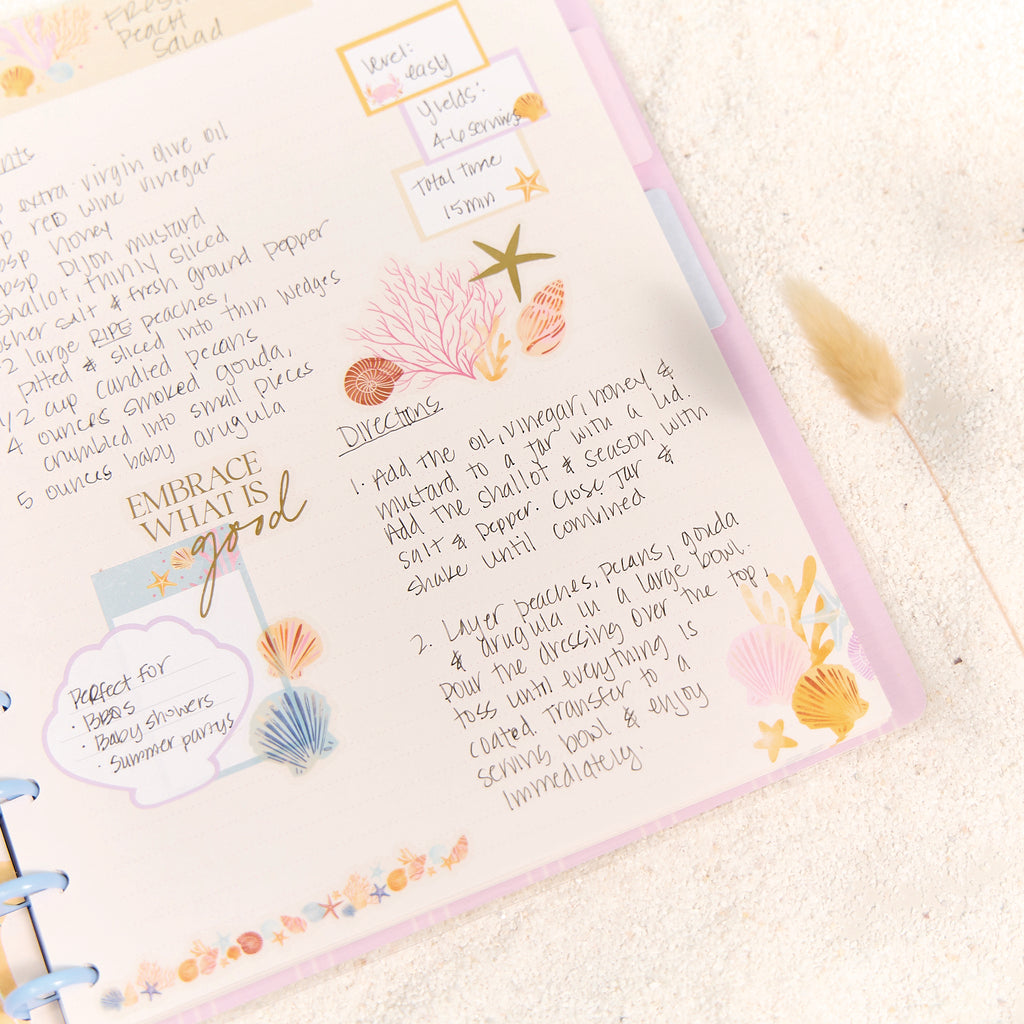 FRESH
PEACH
SALAD
level:
easy
Yields:
4-6 servings
Total time
15 min
extra virgin olive oil
red wine vinegar
honey
Dijon mustard
shallot, thinly sliced
salt & fresh ground pepper
2 large RIPE peaches,
pitted & sliced into thin wedges
1/2 cup candied pecans
4 ounces smoked gouda,
crumbled into small pieces
5 ounces baby arugula
EMBRACE
WHAT IS
good
Perfect for
• BBQs
• Baby showers
• Summer partys
Directions
1. Add the oil, vinegar, honey &
mustard to a jar with a lid.
Add the shallot & season with
salt & pepper. Close jar &
shake until combined
2. Layer peaches, pecans, gouda
& arugula in a large bowl.
Pour the dressing over the top,
toss until everything is
coated. Transfer to a
serving bowl & enjoy
immediately.